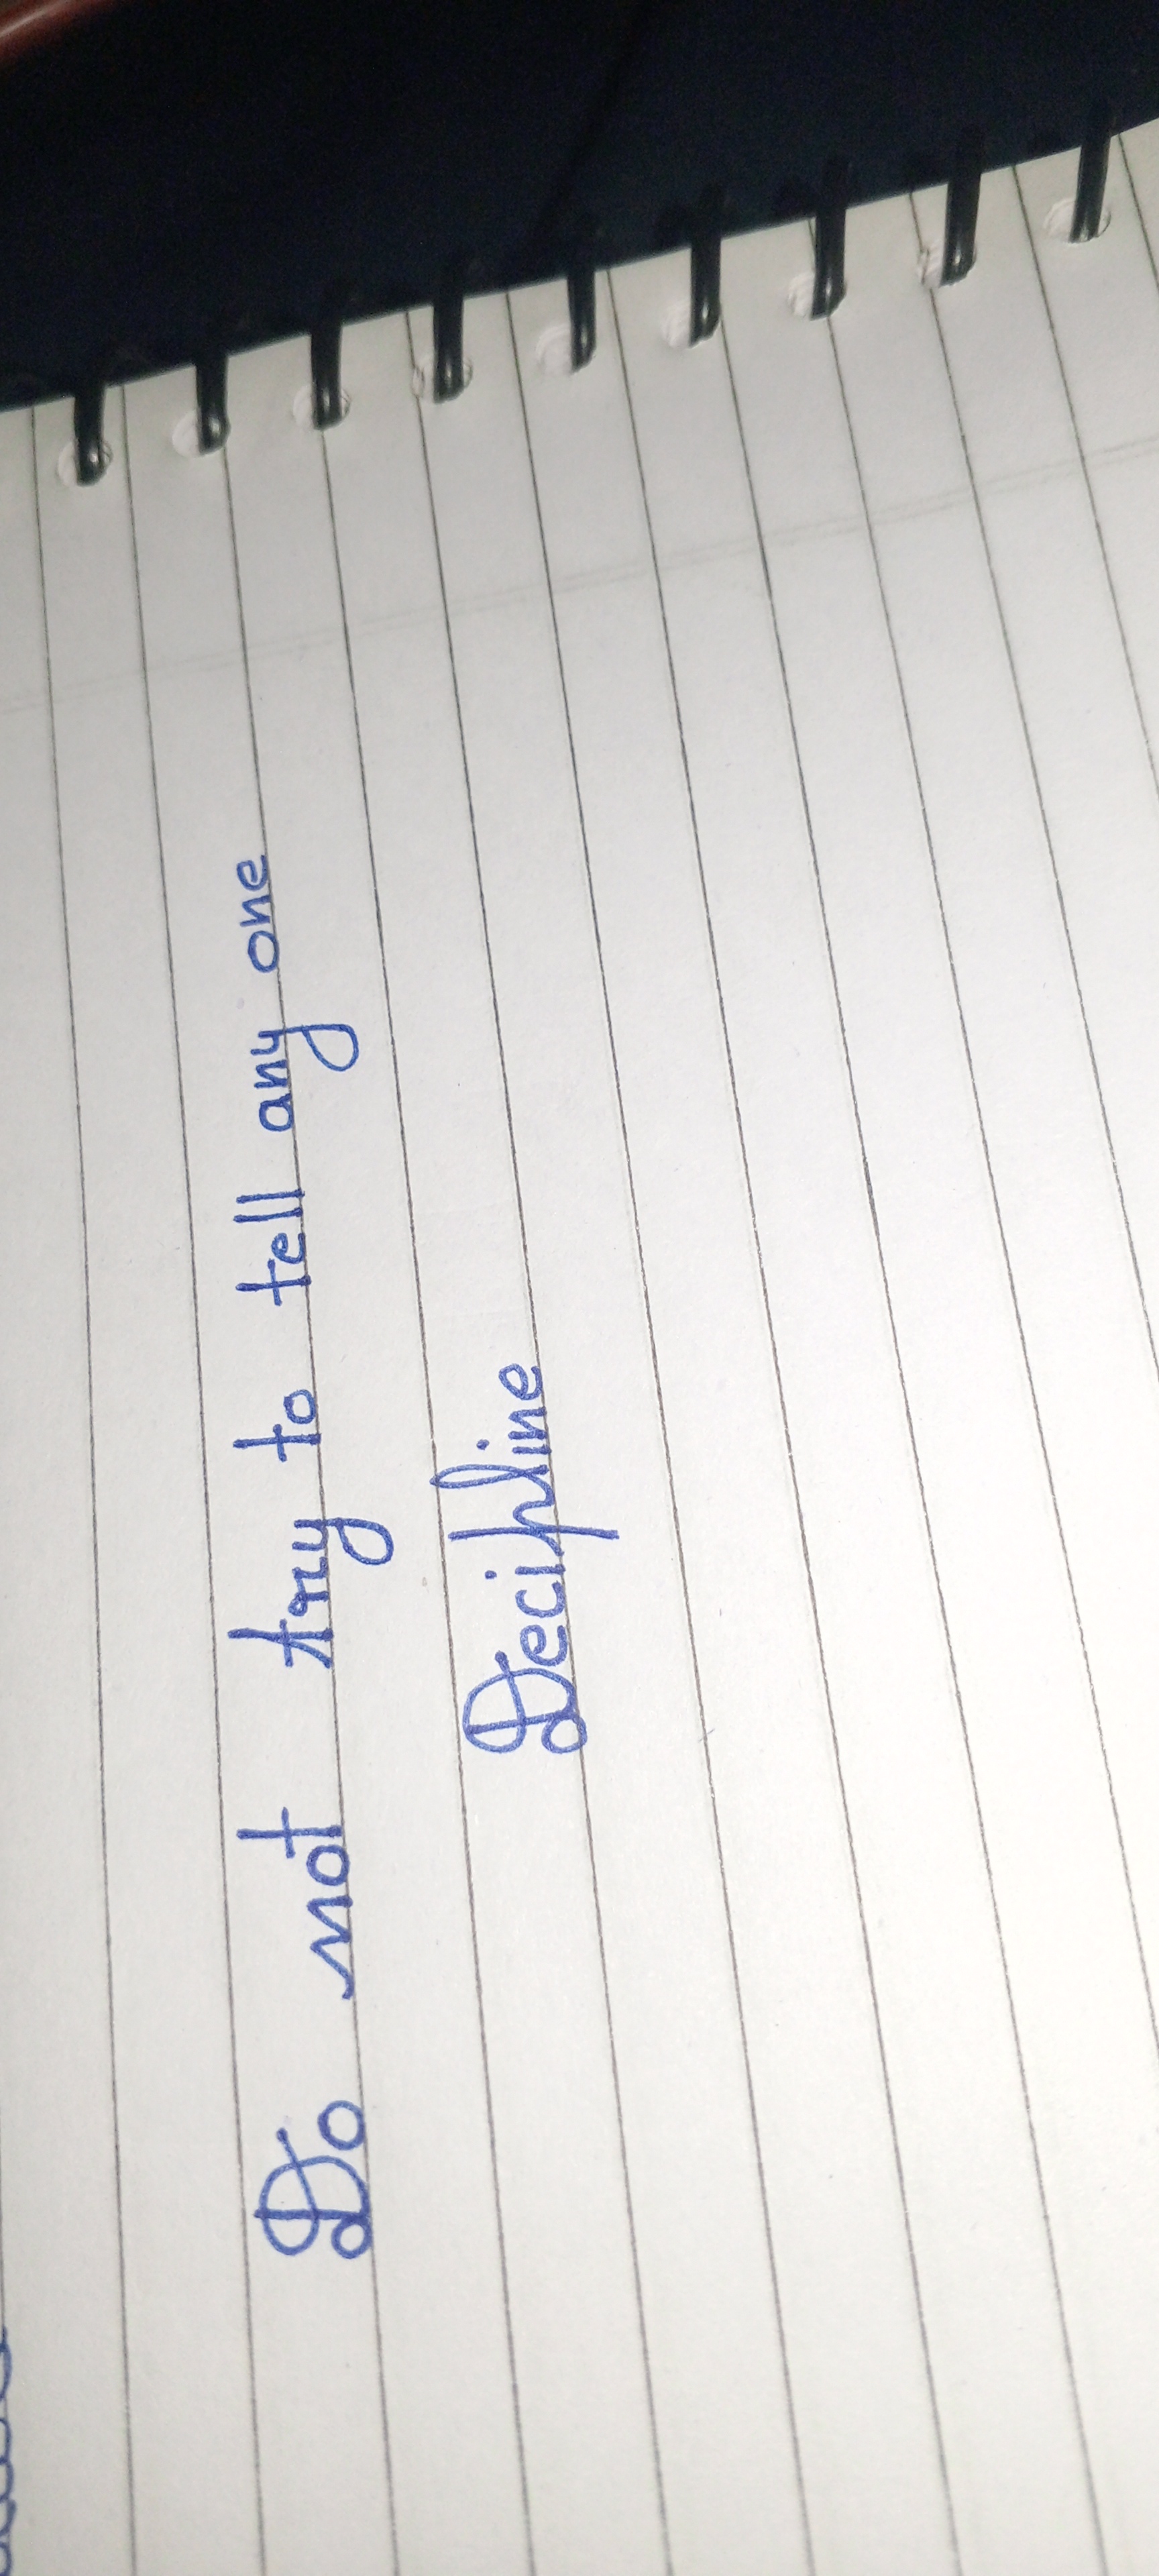 Do not try to tell any one
Decipline